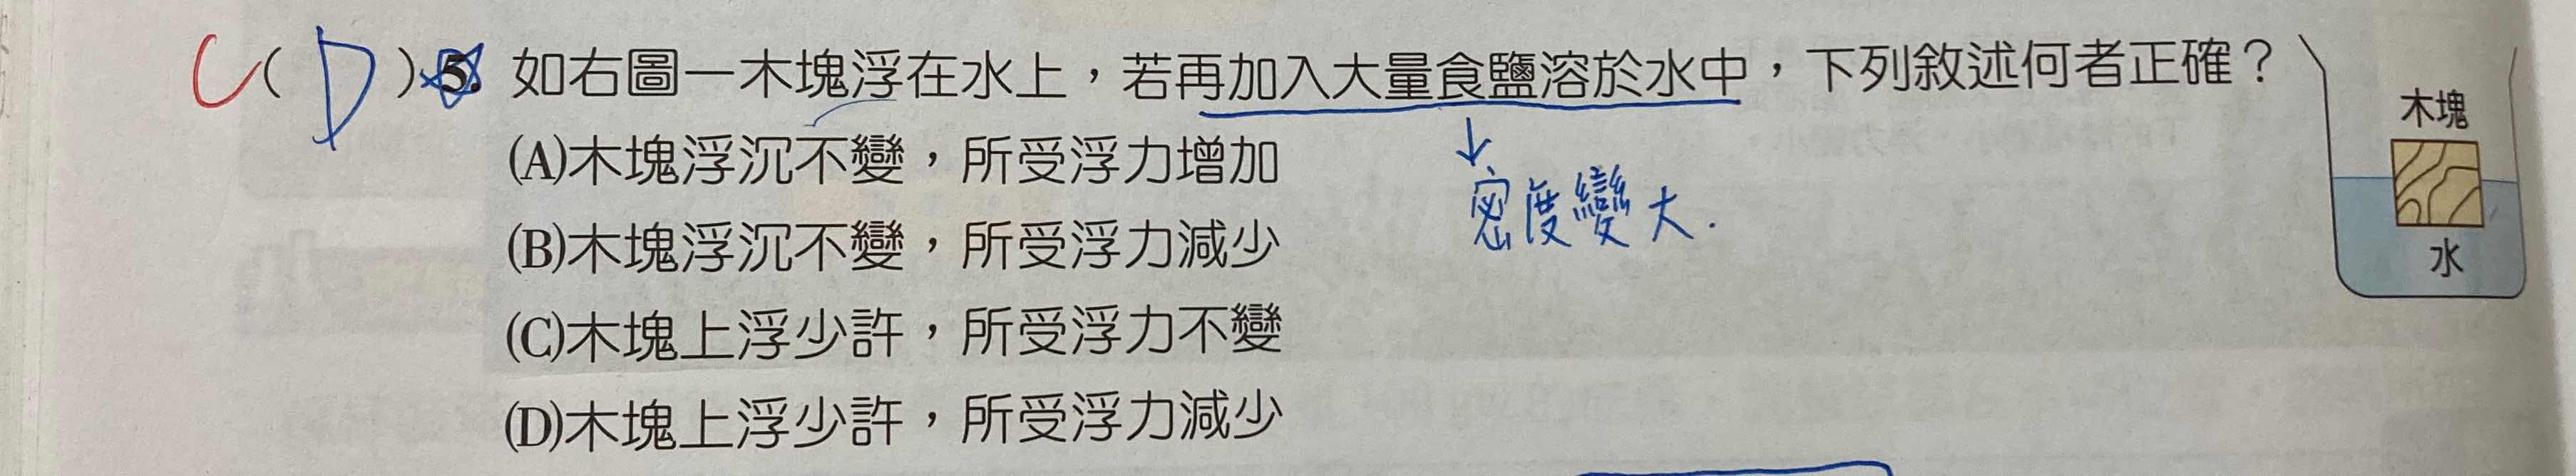 C( D )5. 如右圖一木塊浮在水上，若再加入大量食鹽溶於水中，下列敘述何者正確？
(A)木塊浮沉不變，所受浮力增加
(B)木塊浮沉不變，所受浮力減少
(C)木塊上浮少許，所受浮力不變
(D)木塊上浮少許，所受浮力減少
↓
密度變大.
木塊
水